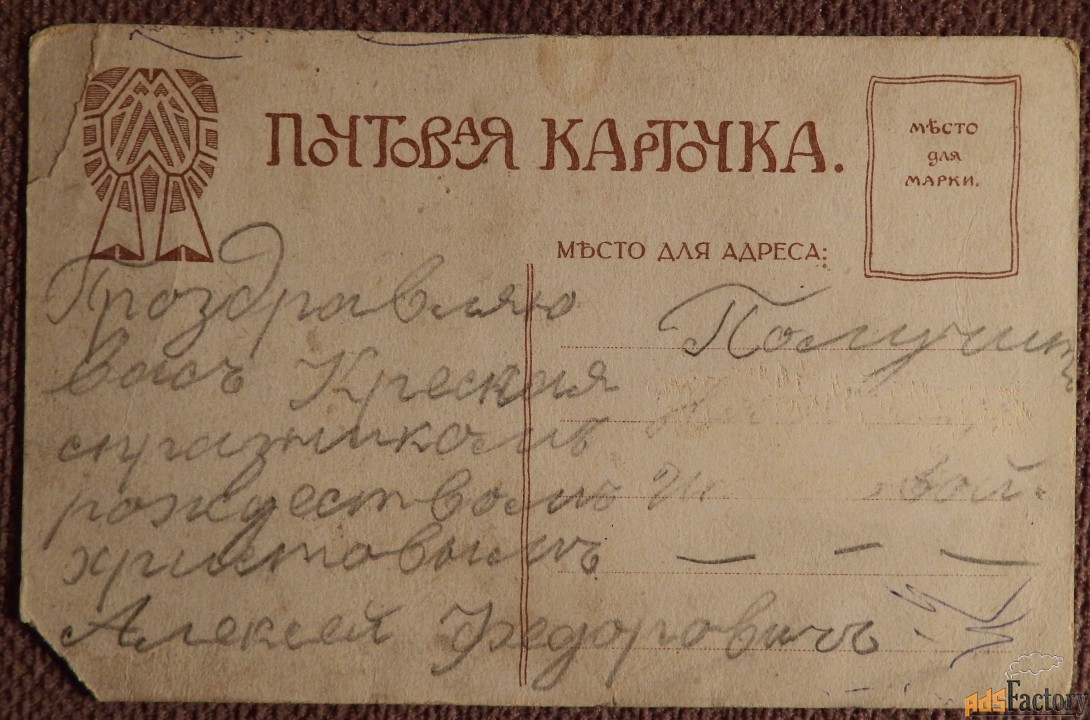 ПОЧТОВАЯ КАРТОЧКА.
МѢСТО
для
МАРКИ.
МѢСТО ДЛЯ АДРЕСА:
Проздравляю
васъ Креския
спразникомъ
рождествомъ
христовымъ
Алексей Федоровичъ
Получит
adsFactory